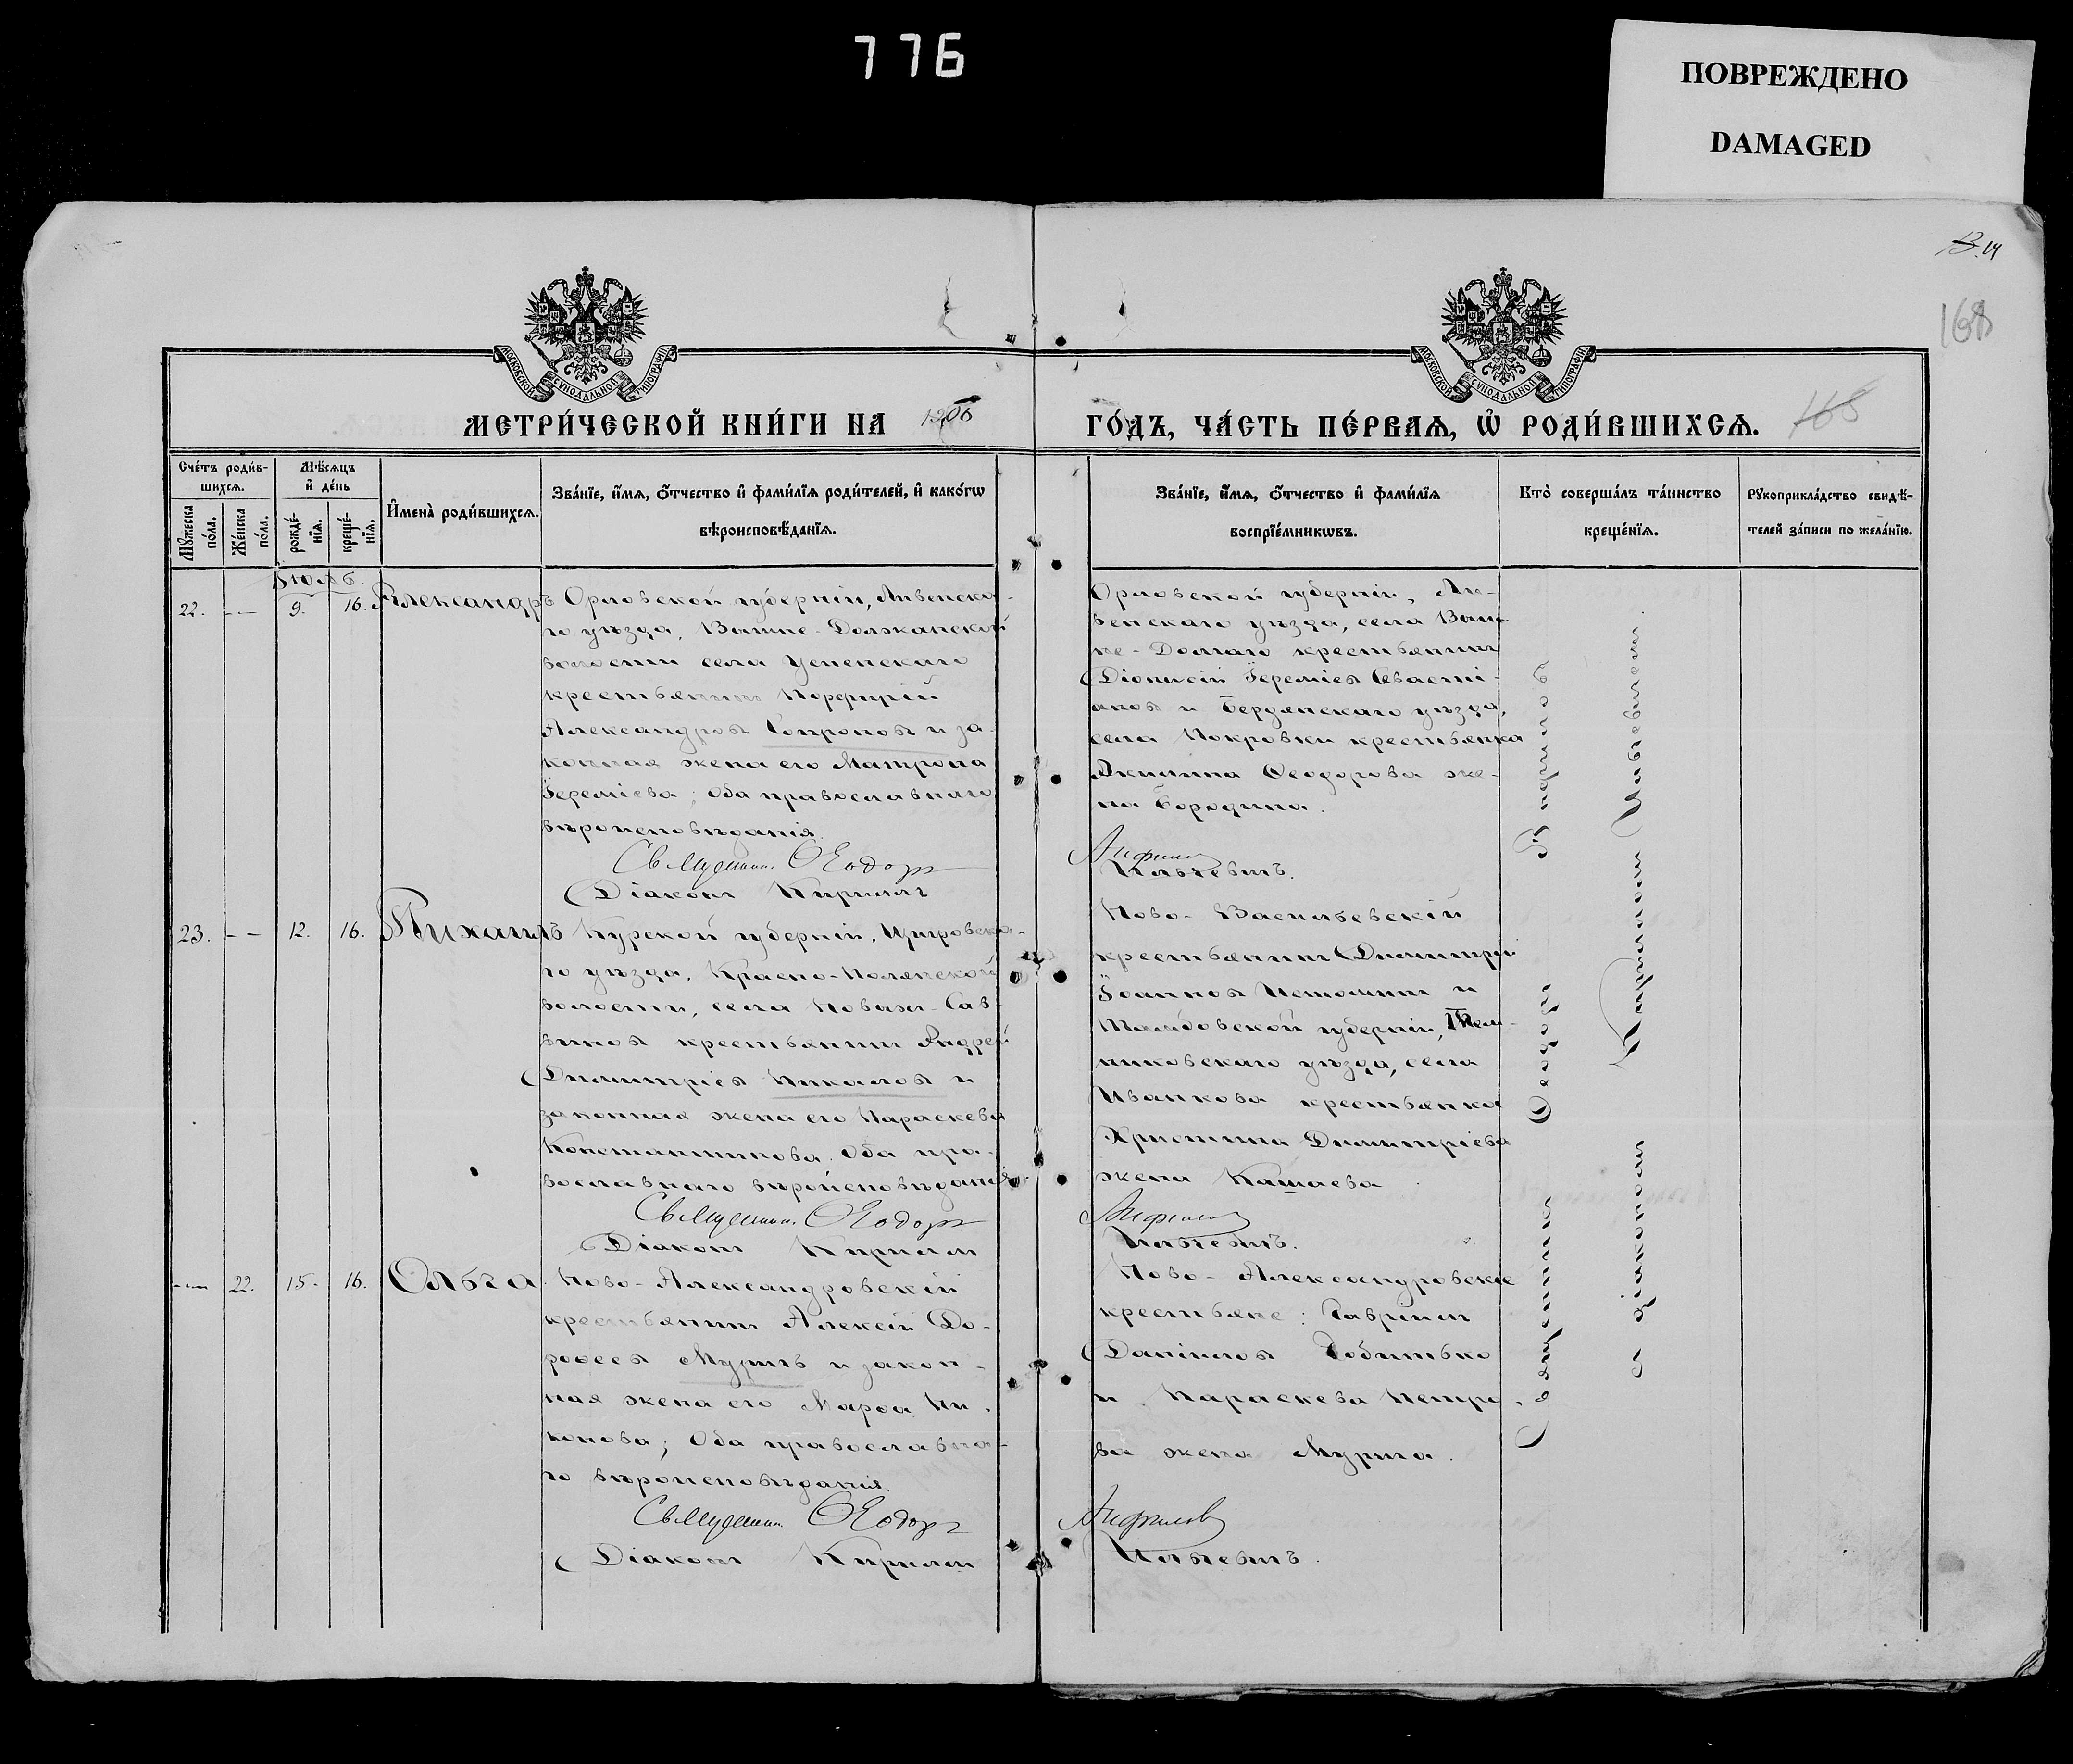 776
ПОВРЕЖДЕНО
DAMAGED
13. 14
168
МОСКОВСКОЙ СѴНОДАЛЬНОЙ ТИПОГРАФІИ
МОСКОВСКОЙ СѴНОДАЛЬНОЙ ТИПОГРАФІИ
МЕТРИ́ЧЕСКОЙ КНИ́ГИ НА 1906 ГО́ДЪ, ЧА́СТЬ ПЕ́РВАЯ, Ѽ РОДИ́ВШИХСѦ. 165
Сче́тъ роди́в-
шихсѧ.
Мꙋжеска по́ла.
Же́нска по́ла.
Мѣ́сѧцъ
и҆ де́нь
рожде́-
нїѧ.
креще́-
нїѧ.
И҆мена̀ роди́вшихсѧ.
Зва́нїе, и҆́мѧ, ѻ҆́тчество и҆ фами́лїѧ роди́телей, и҆ како́гѡ
вѣроисповѣ́данїѧ.
Зва́нїе, и҆́мѧ, ѻ҆́тчество и҆ фами́лїѧ
воспрїе́мникѡвъ.
Кто̀ соверша́лъ та́инство
креще́нїѧ.
Рꙋкоприкла́дство свидѣ́-
телей за́писи по жела́нїю.
Іюль
22. -- 9. 16. Александръ
Орловской губерніи, Ливенска-
го уѣзда, Вышне-Должанской
волости села Успенскаго
крестьянинъ Порфирій
Александровъ Сопроновъ и за-
конная жена его Матрона
Іереміева; оба православнаго
вѣроисповѣданія.
Священник Ѳеодоръ
Діаконъ Кириллъ
Орловской губерніи, Ли-
венскаго уѣзда, села Выш-
не-Долгаго крестьянинъ
Діонисій Іереміевъ Севасті-
ановъ и Бердянскаго уѣзда,
села Покровки крестьянка
Акилина Ѳеодорова же-
на Бородина.
Ильчевичъ.
23. -- 12. 16. Михаилъ
Курской губерніи, Щигровска-
го уѣзда, Красно-Полянской
волости, села Новыхъ-Сав-
виновъ крестьянинъ Андрей
Димитріевъ Николовъ и
законная жена его Параскева
Константинова. Оба пра-
вославнаго вѣроисповѣданія.
Священник Ѳеодоръ
Діаконъ Кириллъ
Ново-Васильевскій
крестьянинъ Димитрій
Іоанновъ Истоминъ и
Тамбовской губерніи, Тем-
никовскаго уѣзда, села
Иванкова крестьянка
Христина Димитріева
жена Кашаева
Ильчевичъ.
-- 22. 15. 16. Ольга
Ново-Александровскій
крестьянинъ Алексій До-
роѳеевъ Муричъ и закон-
ная жена его Марѳа Ни-
конова; Оба православна-
го вѣроисповѣданія.
Священник Ѳеодоръ
Діаконъ Кириллъ
Ново-Александровскіе
крестьяне: Гавріилъ
Даніиловъ Добитько
и Параскева Петро-
ва жена Мурича.
Ильчевичъ.
Священникъ Ѳеодоръ
съ діакономъ Кирилломъ Ильчевичемъ.